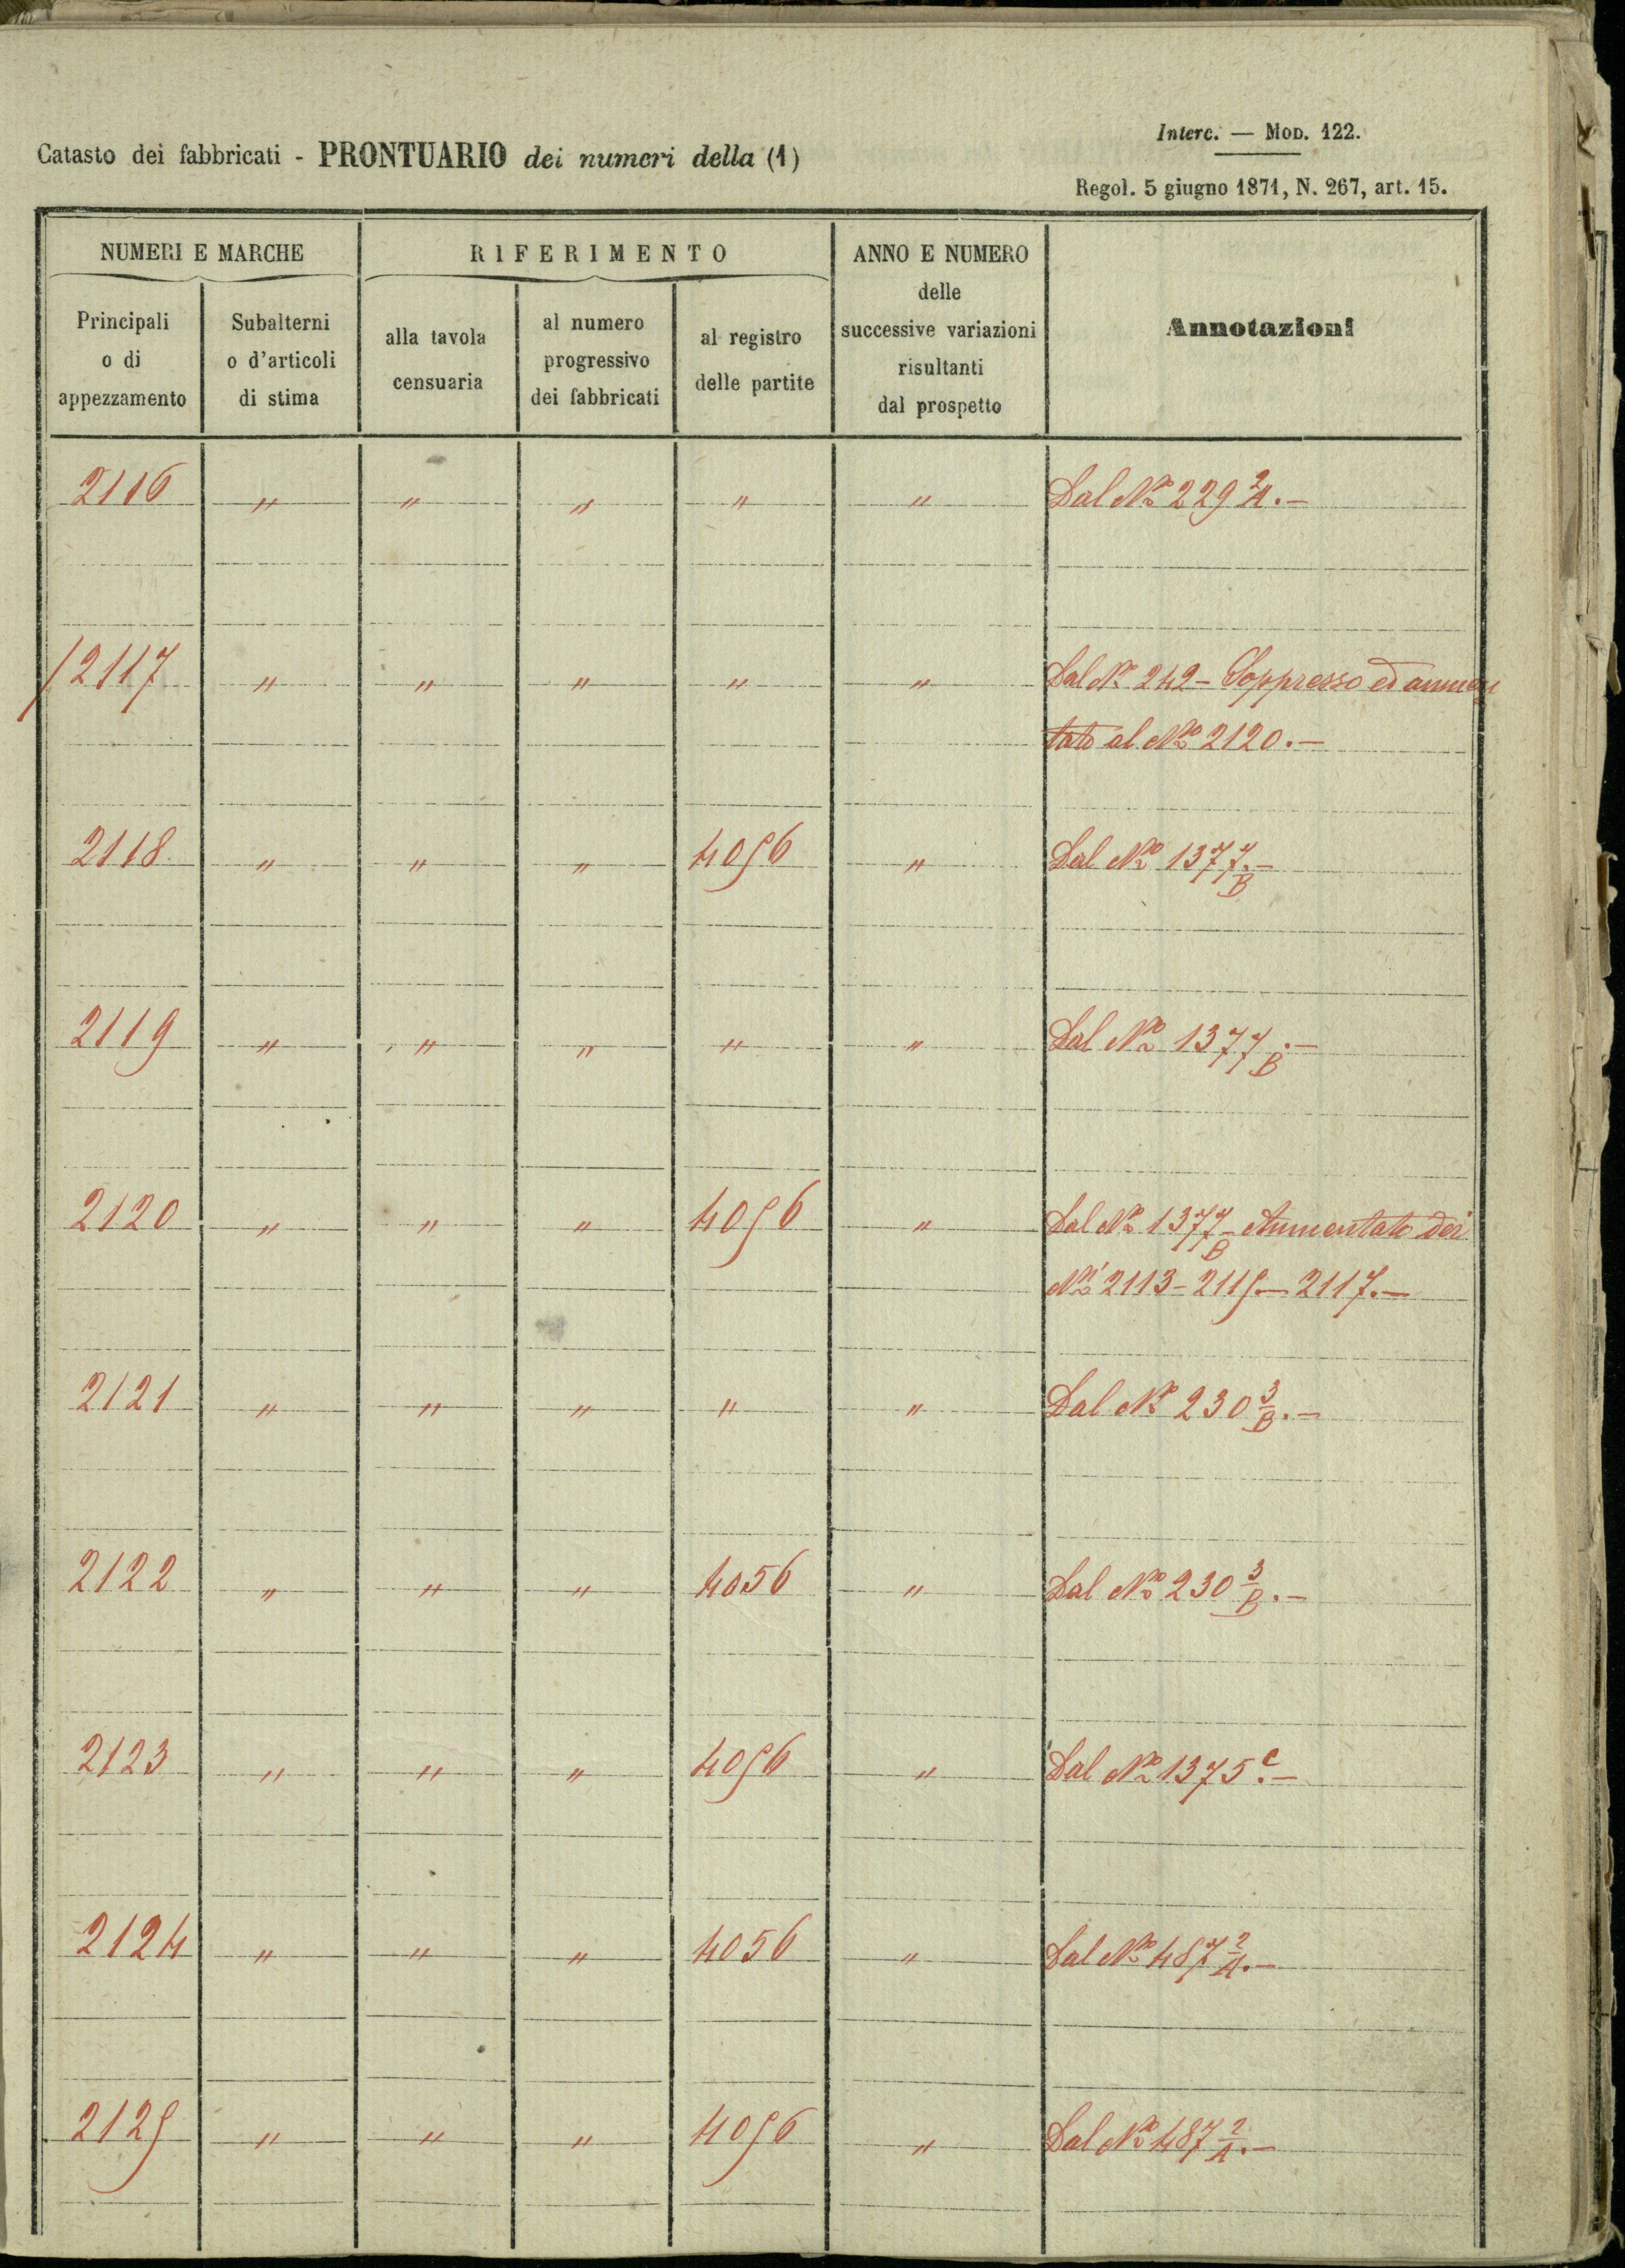 Interc. — Mod. 122.
Catasto dei fabbricati - PRONTUARIO dei numeri della (1)
Regol. 5 giugno 1871, N. 267, art. 15.
NUMERI E MARCHE RIFERIMENTO ANNO E NUMERO delle successive variazioni risultanti dal prospetto Annotazioni
Principali o di appezzamento Subalterni o d'articoli di stima alla tavola censuaria al numero progressivo dei fabbricati al registro delle partite
2116 " " " " " Dal No 229 2/A.—
/2117 " " " " " Dal No 242 - Soppresso ed aumen
tato al No 2120.—
2118 " " " 4056 " Dal No 1377/B.—
2119 " " " " " Dal No 1377 B.—
2120 " " " 4056 " Dal No 1377/B - Aumentato dei
Ni 2113 - 2115.— 2117.—
2121 " " " " " Dal No 230 3/B.—
2122 " " " 4056 " Dal No 230 3/B.—
2123 " " " 4056 " Dal No 1375 c.—
2124 " " " 4056 " Dal No 487 2/A.—
2125 " " " 4056 " Dal No 487 2/A.—